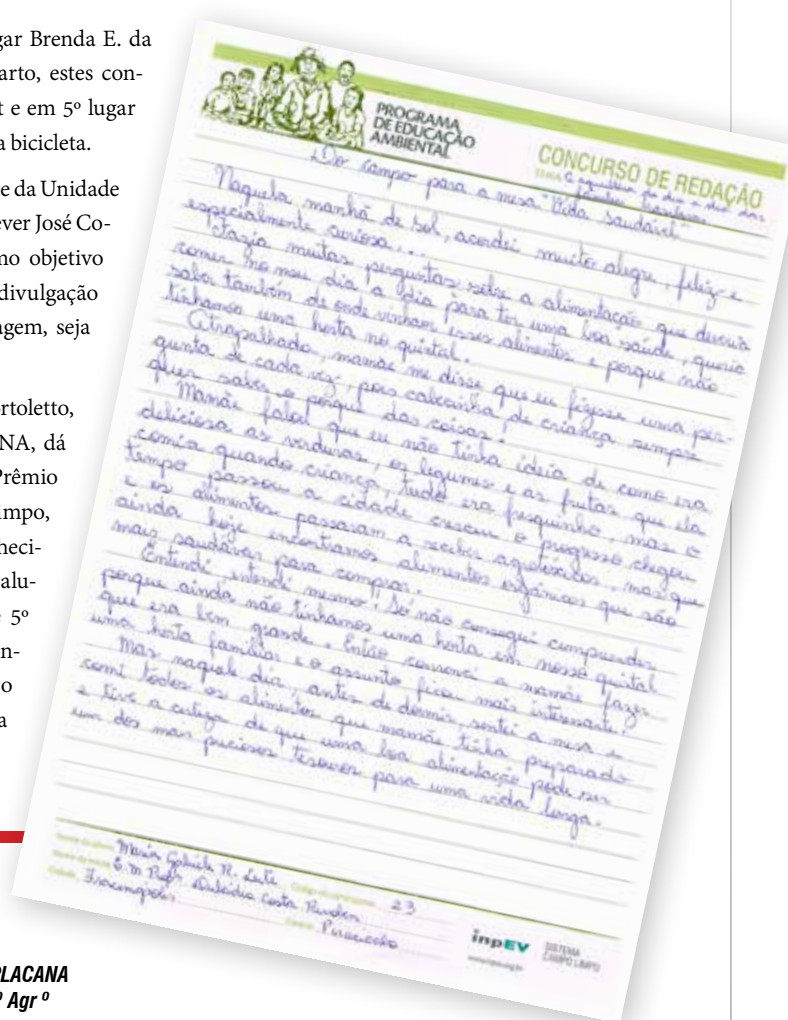 gar Brenda E. da
arto, estes con-
t e em 5º lugar
a bicicleta.
e da Unidade
ever José Co-
mo objetivo
divulgação
agem, seja
ortoletto,
NA, dá
Prêmio
impo,
heci-
alu-
5º
n-
o
a
LACANA
º Agr º
PROGRAMA
DE EDUCAÇÃO
AMBIENTAL
CONCURSO DE REDAÇÃO
TEMA: O equilíbrio do dia a dia dos
Do campo para a mesa "Vida saudável"
Naquela manhã de sol, acordei muito alegre, feliz e
especialmente curiosa...
Fazia muitas perguntas sobre a alimentação que deveria
comer no meu dia a dia para ter uma boa saúde, queria
saber também de onde vinham esses alimentos e porque não
tínhamos uma horta no quintal.
Atrapalhada, mamãe me disse que eu fizesse uma per-
gunta de cada vez, pois cabecinha de criança sempre
quer saber o porque das coisas.
Mamãe falou que eu não tinha ideia de como era
deliciosa as verduras, os legumes e as frutas que ela
comia quando criança, tudo era fresquinho, mas o
tempo passou a cidade cresceu o progresso chegou
e os alimentos passaram a receber agrotóxicos, mas que
ainda hoje encontramos alimentos orgânicos que são
mais saudáveis para comprar.
Entendi, entendi mesmo! Só não consegui compreender
porque ainda não tínhamos uma horta em nosso quintal
que era bem grande. Então convenci a mamãe fazer
uma horta familiar e o assunto ficou mais interessante.
Mas naquele dia, antes de dormir sentei a mesa e
comi todos os alimentos que mamãe tinha preparado
e tive a certeza de que uma boa alimentação pode ser
um dos mais preciosos tesouros para uma vida longa.
Maria Gabriele R. Leite
23
E.M Profª Dulcídia Costa
Iracemápolis
Piracicaba
inpEV
SISTEMA
CAMPO LIMPO